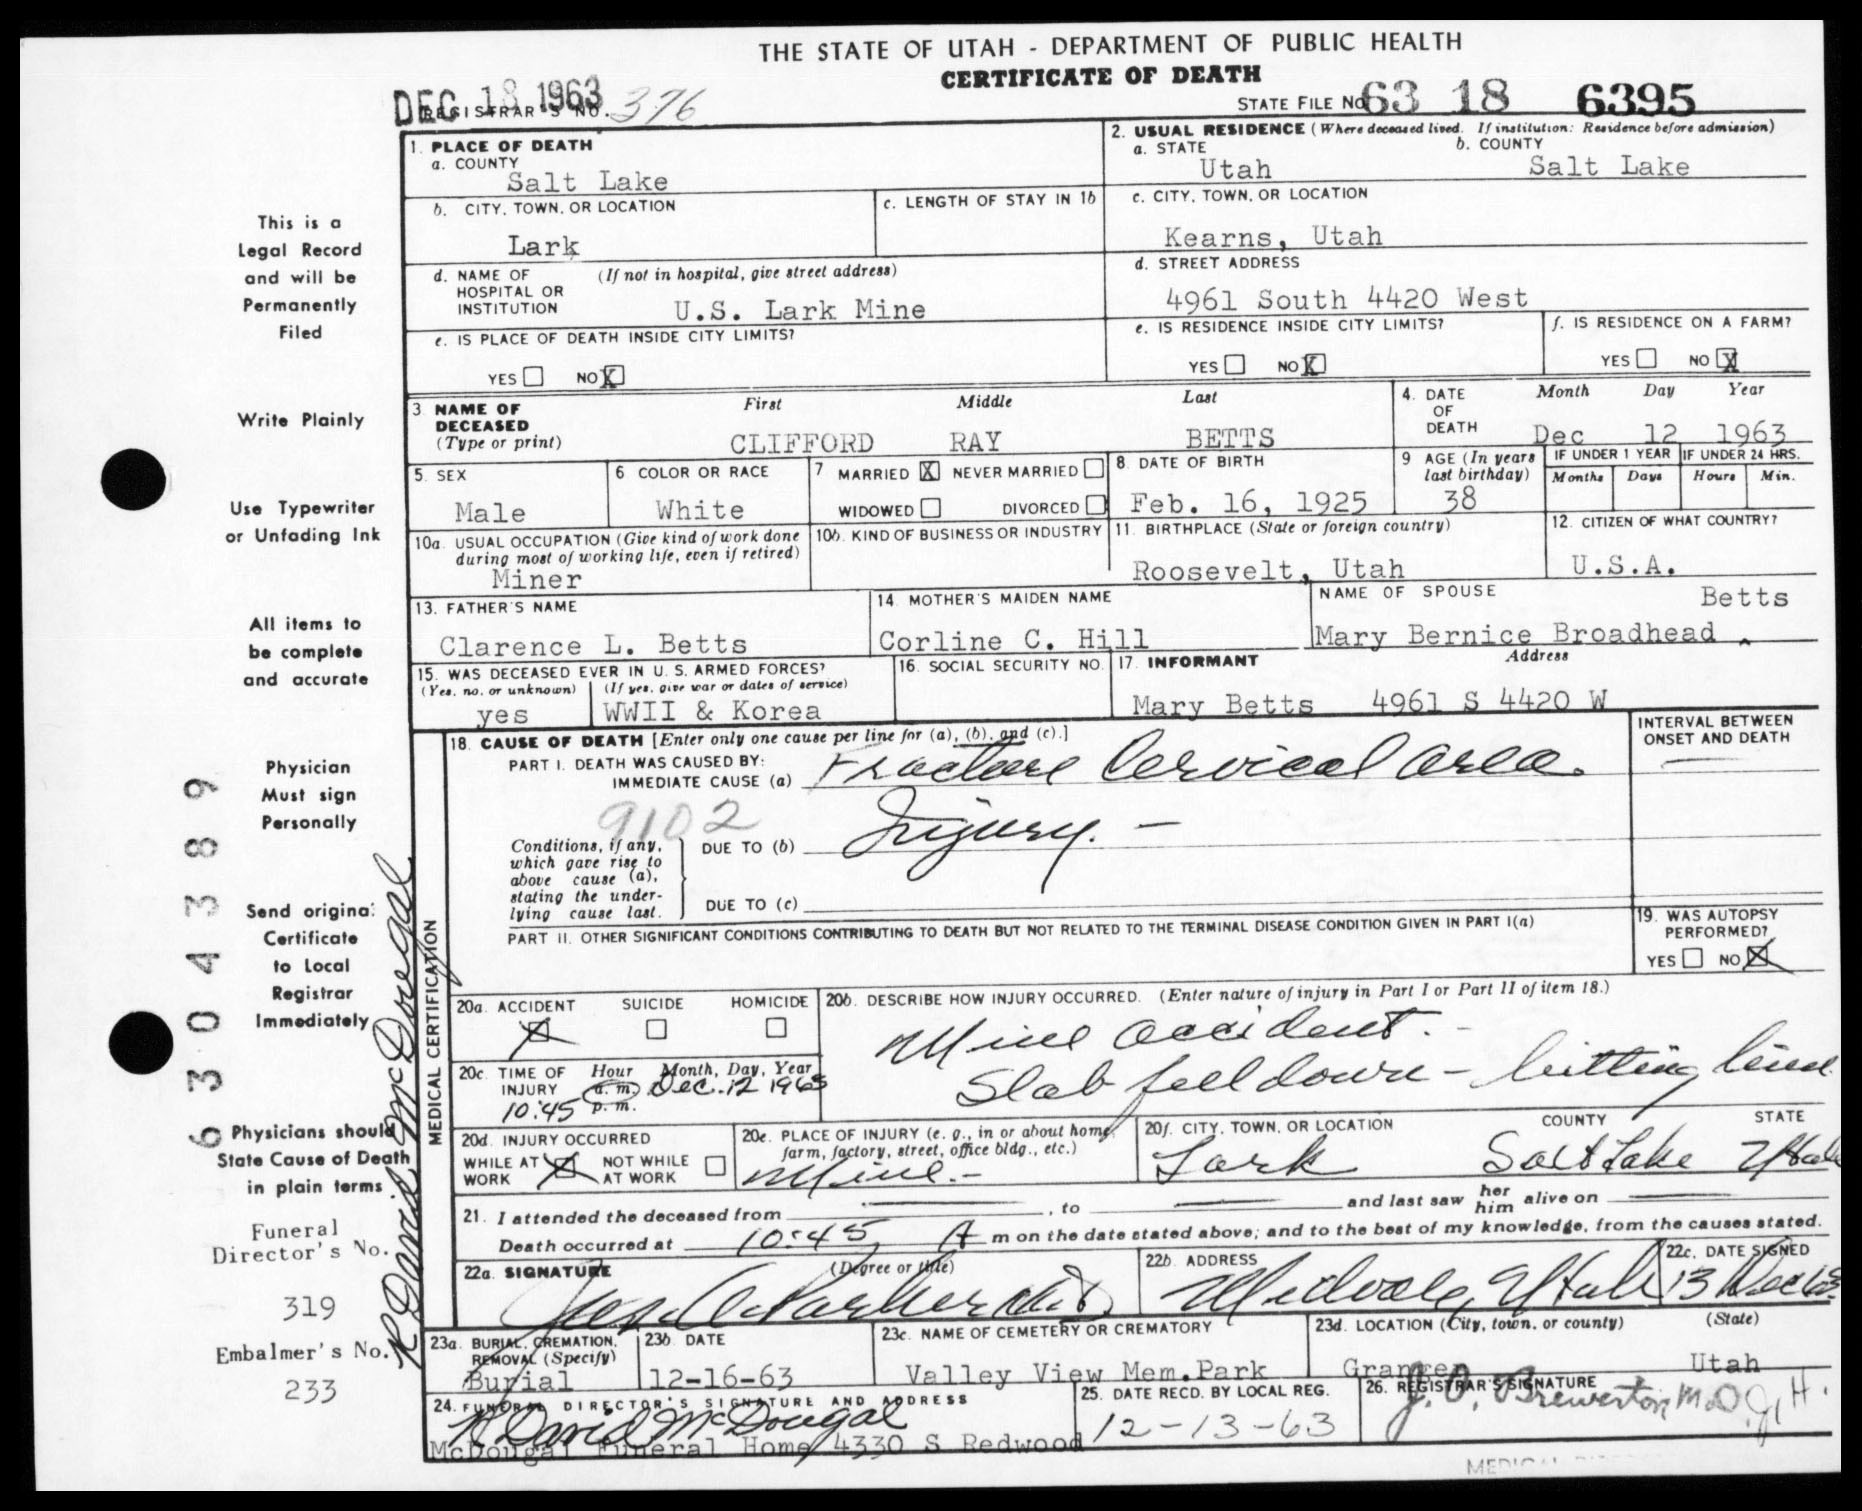 THE STATE OF UTAH - DEPARTMENT OF PUBLIC HEALTH
CERTIFICATE OF DEATH
DEC 18 1963
REGISTRAR'S NO. 376
STATE FILE NO. 63 18 6395
1. PLACE OF DEATH
a. COUNTY
Salt Lake
2. USUAL RESIDENCE (Where deceased lived. If institution: Residence before admission)
a. STATE
Utah
b. COUNTY
Salt Lake
b. CITY, TOWN, OR LOCATION
Lark
c. LENGTH OF STAY IN 1b
c. CITY, TOWN, OR LOCATION
Kearns, Utah
d. NAME OF HOSPITAL OR INSTITUTION
(If not in hospital, give street address)
U.S. Lark Mine
d. STREET ADDRESS
4961 South 4420 West
e. IS PLACE OF DEATH INSIDE CITY LIMITS?
YES NO X
e. IS RESIDENCE INSIDE CITY LIMITS?
YES NO X
f. IS RESIDENCE ON A FARM?
YES NO X
3. NAME OF DECEASED
(Type or print)
First Middle Last
CLIFFORD RAY BETTS
4. DATE OF DEATH
Month Day Year
Dec 12 1963
5. SEX
Male
6 COLOR OR RACE
White
7 MARRIED X NEVER MARRIED
WIDOWED DIVORCED
8. DATE OF BIRTH
Feb. 16, 1925
9 AGE (In years last birthday)
38
IF UNDER 1 YEAR
Months Days
IF UNDER 24 HRS.
Hours Min.
10a. USUAL OCCUPATION (Give kind of work done during most of working life, even if retired)
Miner
10b. KIND OF BUSINESS OR INDUSTRY
11. BIRTHPLACE (State or foreign country)
Roosevelt, Utah
12. CITIZEN OF WHAT COUNTRY?
U.S.A.
13. FATHER'S NAME
Clarence L. Betts
14. MOTHER'S MAIDEN NAME
Corline C. Hill
NAME OF SPOUSE
Betts
Mary Bernice Broadhead ^
15. WAS DECEASED EVER IN U. S. ARMED FORCES?
(Yes, no, or unknown)
yes
(If yes, give war or dates of service)
WWII & Korea
16. SOCIAL SECURITY NO.
17. INFORMANT
Address
Mary Betts 4961 S 4420 W
MEDICAL CERTIFICATION
18. CAUSE OF DEATH [Enter only one cause per line for (a), (b), and (c).]
PART I. DEATH WAS CAUSED BY:
IMMEDIATE CAUSE (a) Fracture Cervical area.
9102
Conditions, if any, which gave rise to above cause (a), stating the underlying cause last.
DUE TO (b) Injury. -
DUE TO (c)
INTERVAL BETWEEN ONSET AND DEATH
PART II. OTHER SIGNIFICANT CONDITIONS CONTRIBUTING TO DEATH BUT NOT RELATED TO THE TERMINAL DISEASE CONDITION GIVEN IN PART I(a)
19. WAS AUTOPSY PERFORMED?
YES NO X
20a. ACCIDENT SUICIDE HOMICIDE
X
20b. DESCRIBE HOW INJURY OCCURRED. (Enter nature of injury in Part I or Part II of item 18.)
Mine accident. -
Slab fell down - hitting him
20c. TIME OF INJURY
Hour Month, Day, Year
10:45 a. m. p. m. Dec. 12 1963
20d. INJURY OCCURRED
WHILE AT WORK X NOT WHILE AT WORK
20e. PLACE OF INJURY (e. g., in or about home, farm, factory, street, office bldg., etc.)
Mine. -
20f. CITY, TOWN, OR LOCATION COUNTY STATE
Lark Salt Lake Utah
21. I attended the deceased from , to and last saw her him alive on
Death occurred at 10:45 A m on the date stated above; and to the best of my knowledge, from the causes stated.
22a. SIGNATURE (Degree or title)
22b. ADDRESS
Midvale, Utah
22c. DATE SIGNED
13 Dec 63
23a. BURIAL, CREMATION, REMOVAL (Specify)
Burial
23b. DATE
12-16-63
23c. NAME OF CEMETERY OR CREMATORY
Valley View Mem.Park
23d. LOCATION (City, town, or county) (State)
Granger Utah
24. FUNERAL DIRECTOR'S SIGNATURE AND ADDRESS
R David McDougal
McDougal Funeral Home, 4330 S Redwood
25. DATE RECD. BY LOCAL REG.
12-13-63
26. REGISTRAR'S SIGNATURE
J. O. Brewerton, M.D.
This is a
Legal Record
and will be
Permanently
Filed
Write Plainly
Use Typewriter
or Unfading Ink
All items to
be complete
and accurate
Physician
Must sign
Personally
Send original
Certificate
to Local
Registrar
Immediately
Physicians should
State Cause of Death
in plain terms.
Funeral
Director's No.
319
Embalmer's No.
233
6304389
R David McDougal